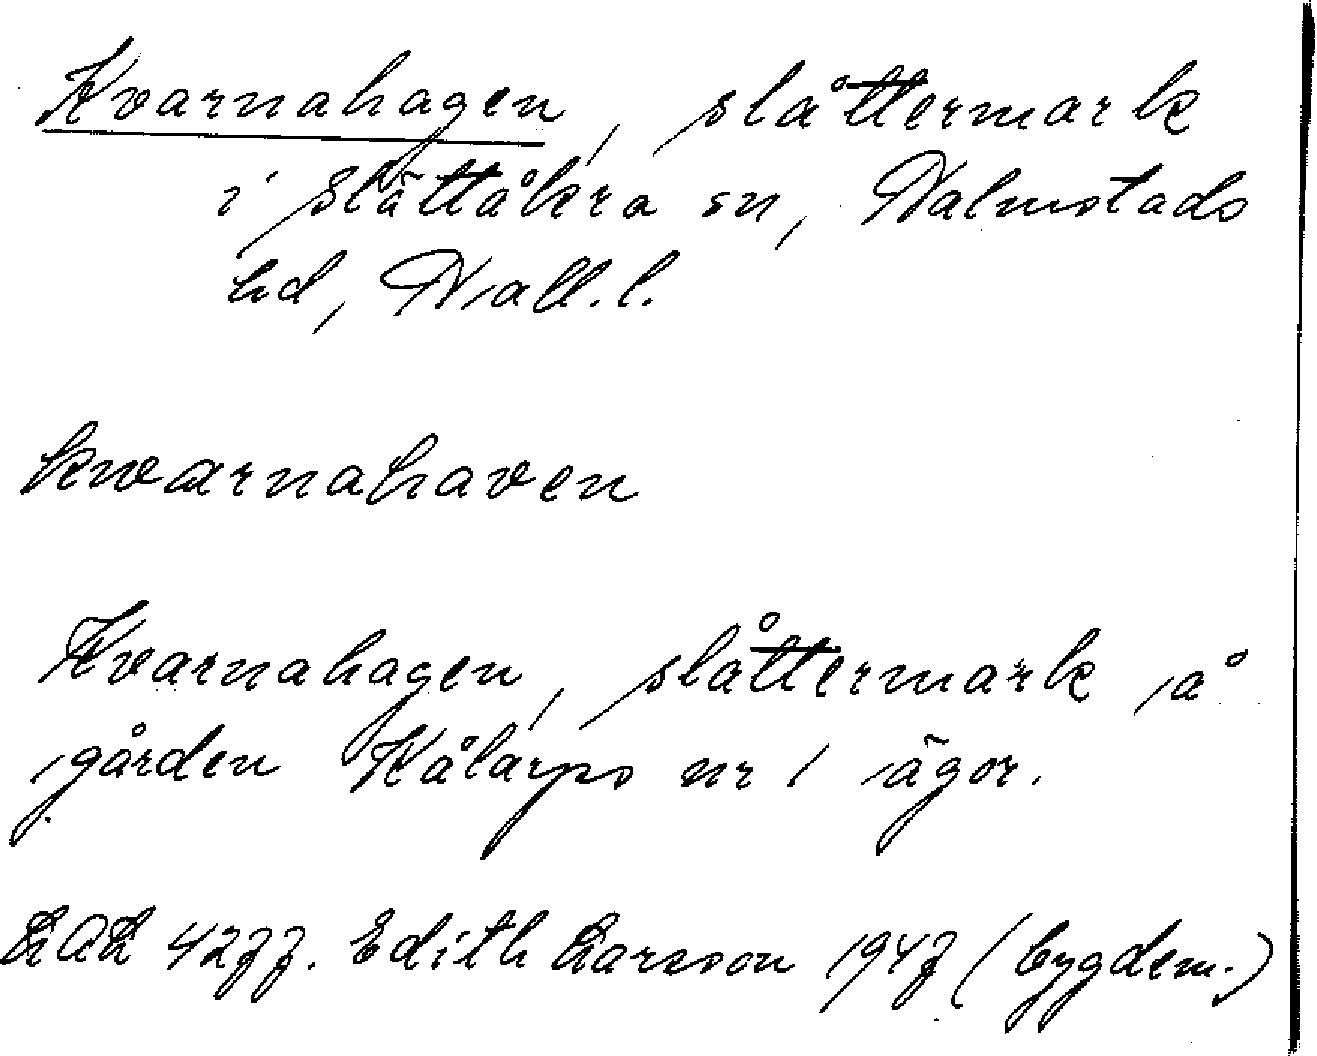 Kvarnahagen, slåttermark
i Slättåkra sn, Halmstads
hd, Hall. l.
kwarnahaven
Kvarnahagen, slåttermark å
gården Kålarps nr 1 ägor.
LAL 4277. Edith Larsson 1947 (bygdem.)